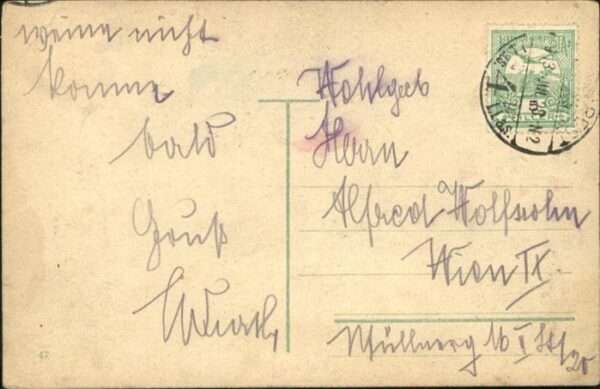 weine nicht
komme
bald
Gruß
Wohlgeb
Herrn
Alfred Wolfsohn
Wien IX
16 I St/
20
47